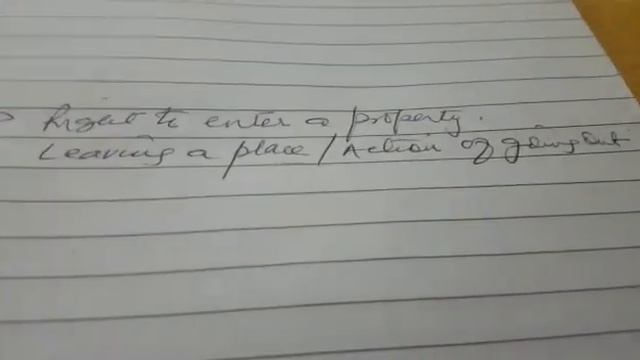 Right to enter a property.
Leaving a place / Action of going out